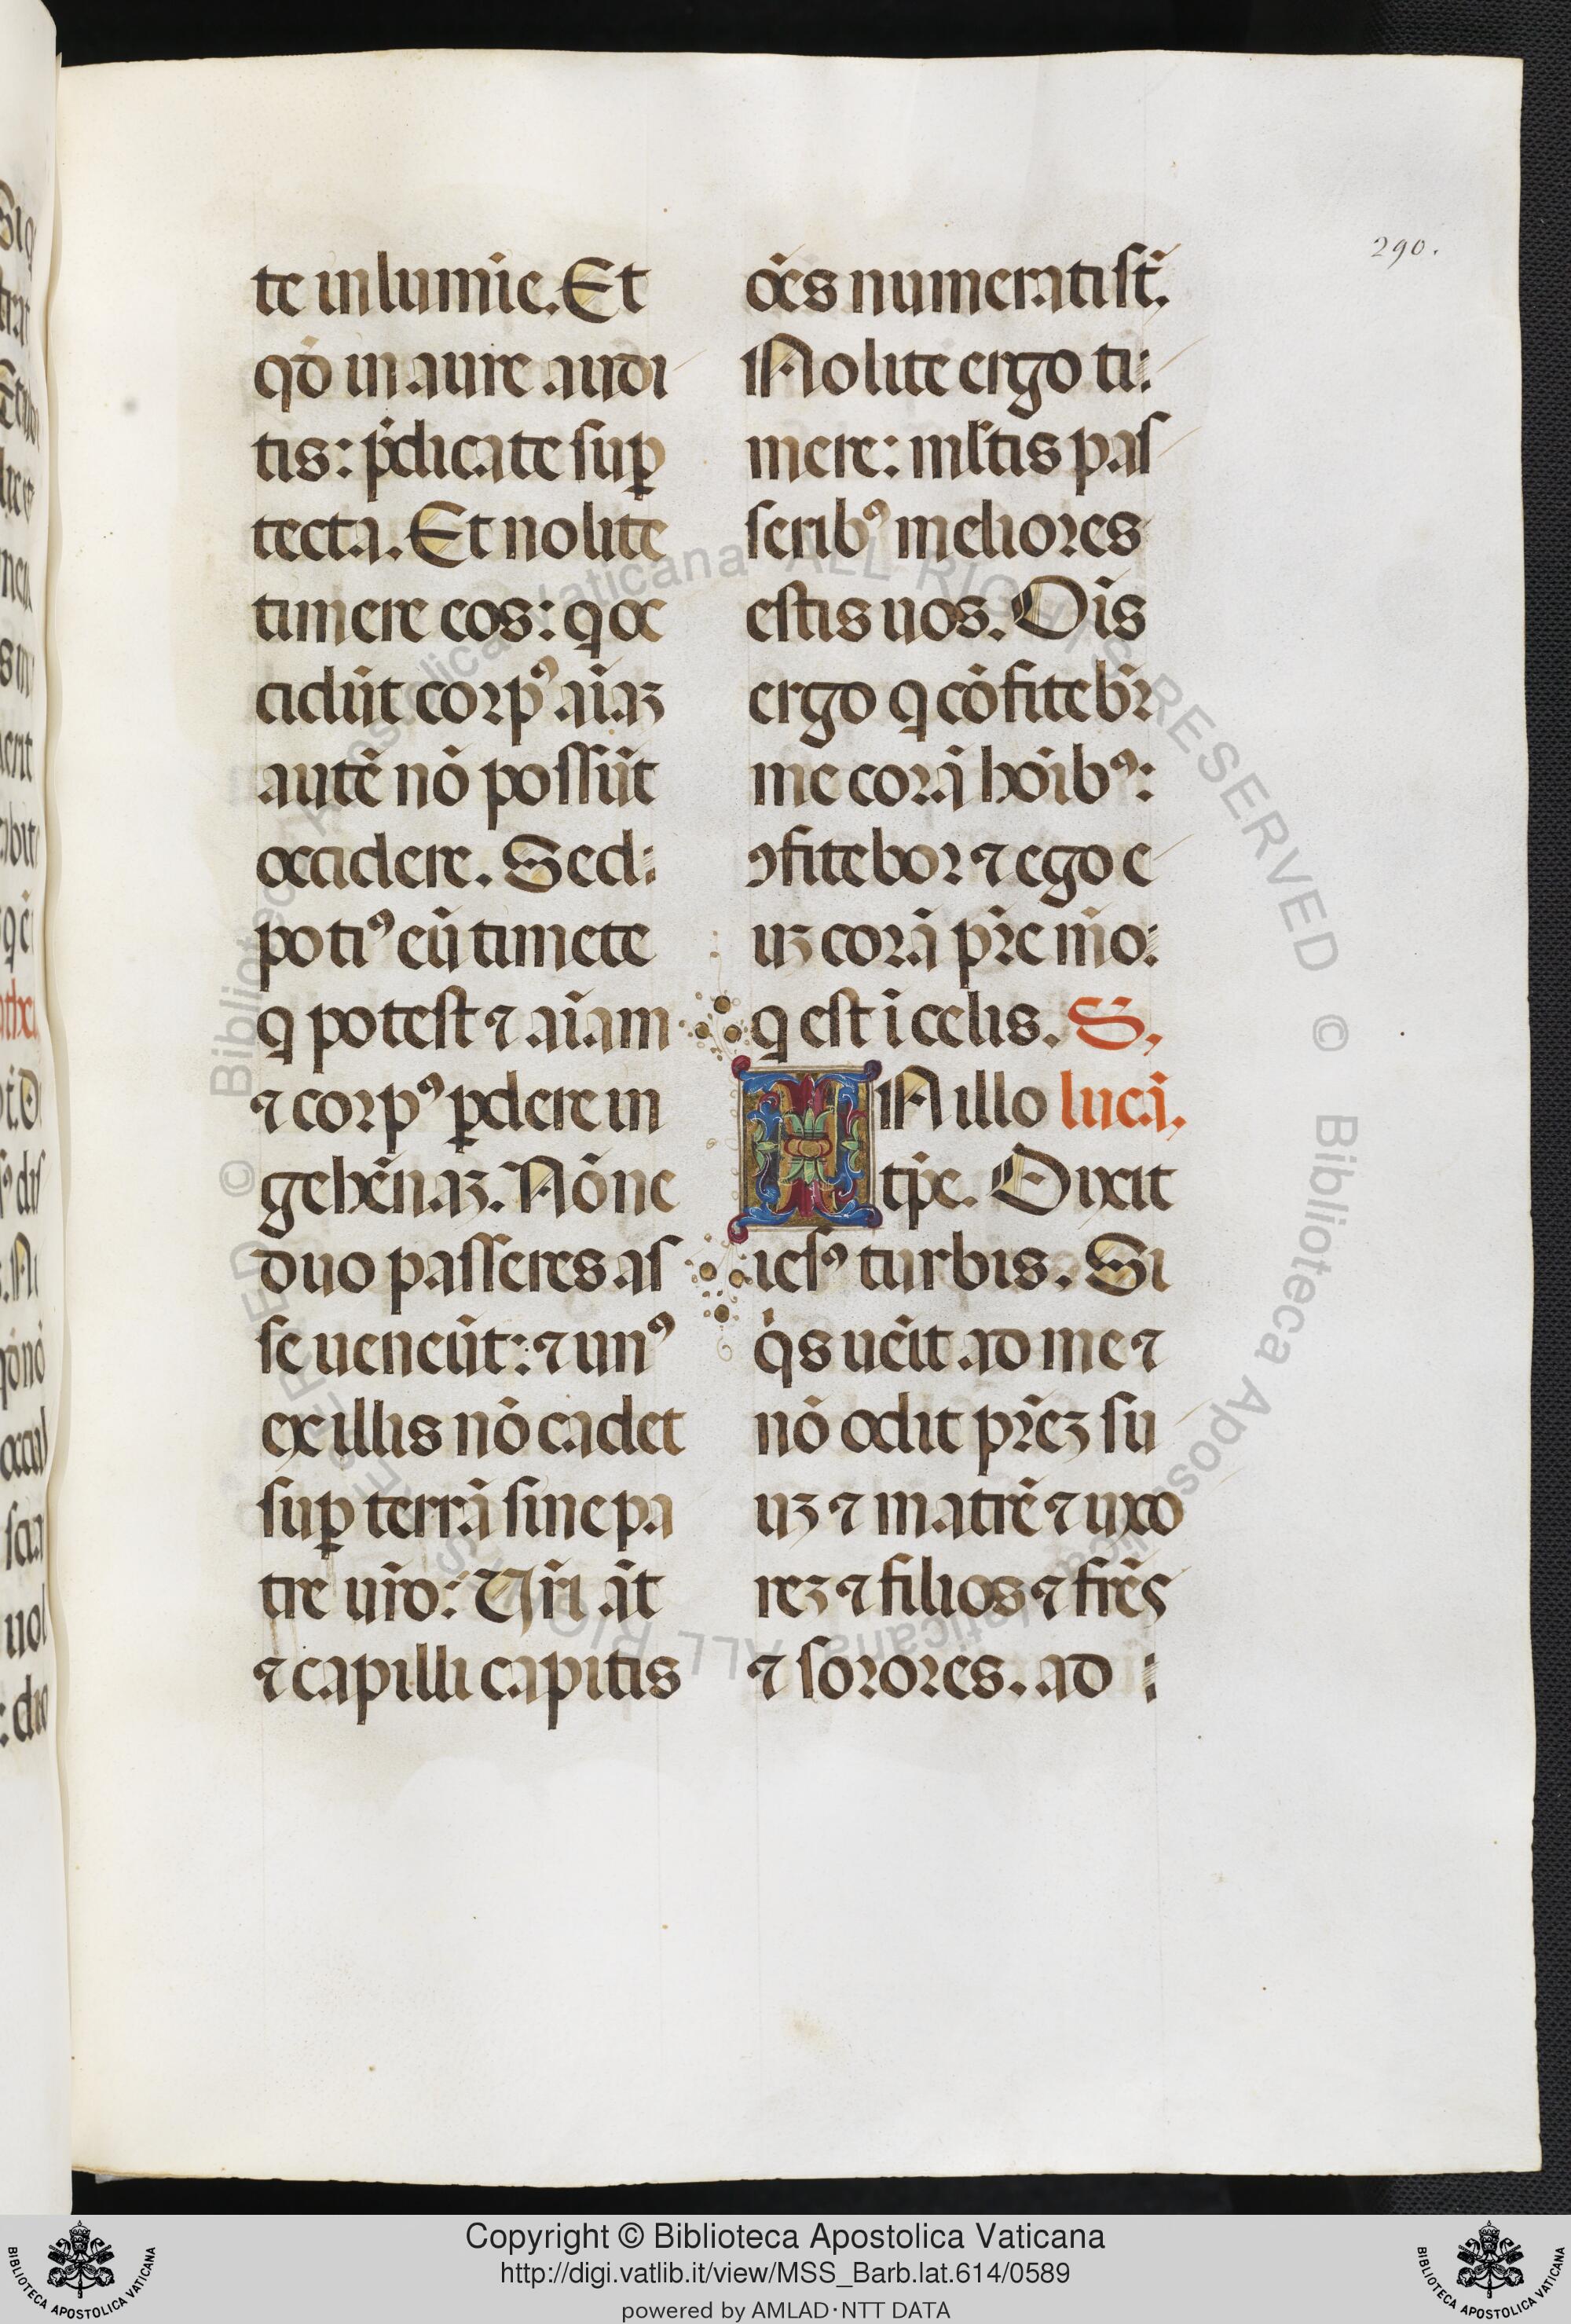 290.
te in lumīe. Et
qd̄ in aure audi
tis: p̄dicate suꝑ
tecta. Et nolite
timere eos: q oc
cidūt corpꝰ aīaꝫ
autē nō possūt
occidere. Sed:
potiꝰ eū timete
q potest ⁊ aīam
⁊ corpꝰ ꝑdere in
gehēnaꝫ. Nōne
duo passeres as
se ueneūt: ⁊ unꝰ
ex illis nō cadet
suꝑ terrā sine pa
tre ur̄o: Ur̄i āt
⁊ capilli capitis
oēs numerati st̄.
Nolite ergo ti:
mere: ml̄tis pas
seribꝰ meliores
estis uos. Oīs
ergo q cōfitebr̄
me corā hoībꝰ:
ꝯfitebor ⁊ ego e
uꝫ corā pr̄e m̄o:
q est ī celis. S.
IN illo lucā.
tp̄e. Dixit
iesꝰ turbis. Si
qͥs uēit ad me ⁊
nō odit pr̄eꝫ su
uꝫ ⁊ matrē ⁊ uxo
reꝫ ⁊ filios ⁊ fr̄es
⁊ sorores. ad :
© Biblioteca Apostolica Vaticana ALL RIGHTS RESERVED
© Biblioteca Apostolica Vaticana ALL RIGHTS RESERVED
BIBLIOTECA APOSTOLICA VATICANA
Copyright © Biblioteca Apostolica Vaticana
http://digi.vatlib.it/view/MSS_Barb.lat.614/0589
powered by AMLAD·NTT DATA
BIBLIOTECA APOSTOLICA VATICANA